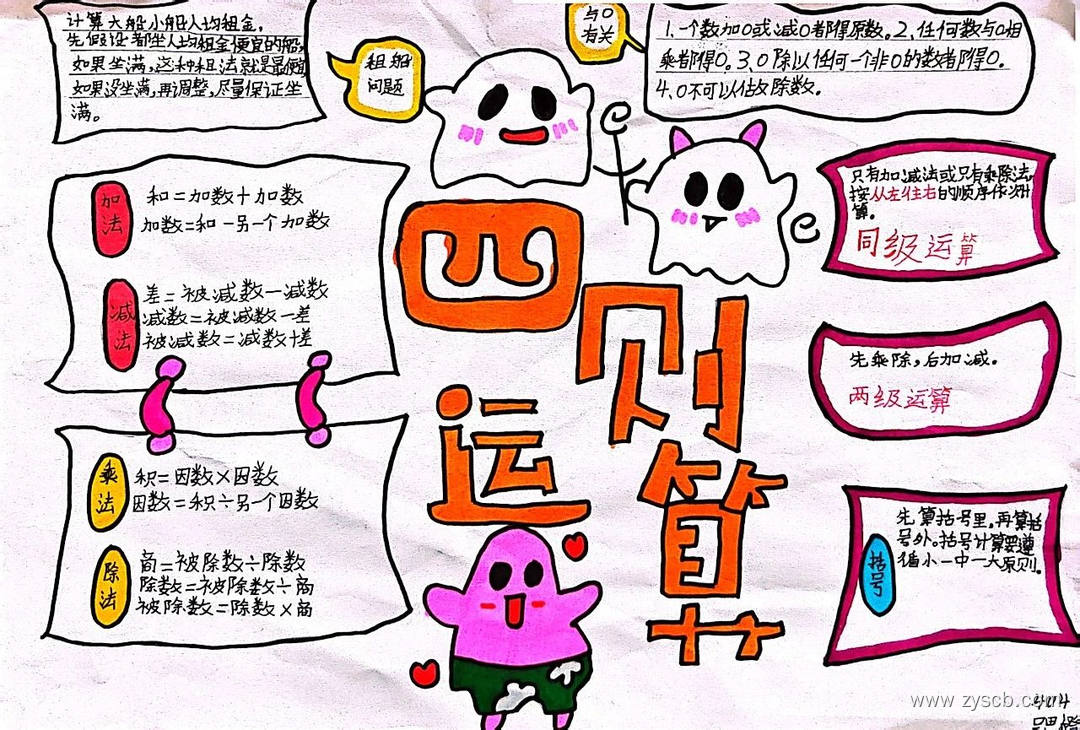 计算大船小船人均租金。
先假设都坐人均租金便宜的船,
如果坐满,这种租法就是最便宜
如果没坐满,再调整,尽量保证坐
满。
租船
问题
与0
有关
1、一个数加0或减0都得原数。2、任何数与0相
乘都得0。3、0除以任何一个非0的数都得0。
4、0不可以做除数。
加法
和=加数+加数
加数=和-另一个加数
减法
差=被减数-减数
减数=被减数-差
被减数=减数+差
乘法
积=因数×因数
因数=积÷另一个因数
除法
商=被除数÷除数
除数=被除数÷商
被除数=除数×商
四则
运算
只有加减法或只有乘除法,
按从左往右的顺序依次计
算。
同级运算
先乘除,后加减。
两级运算
括号
先算括号里,再算括
号外。括号计算要遵
循小一中一大原则。
www.zyscb.c
404